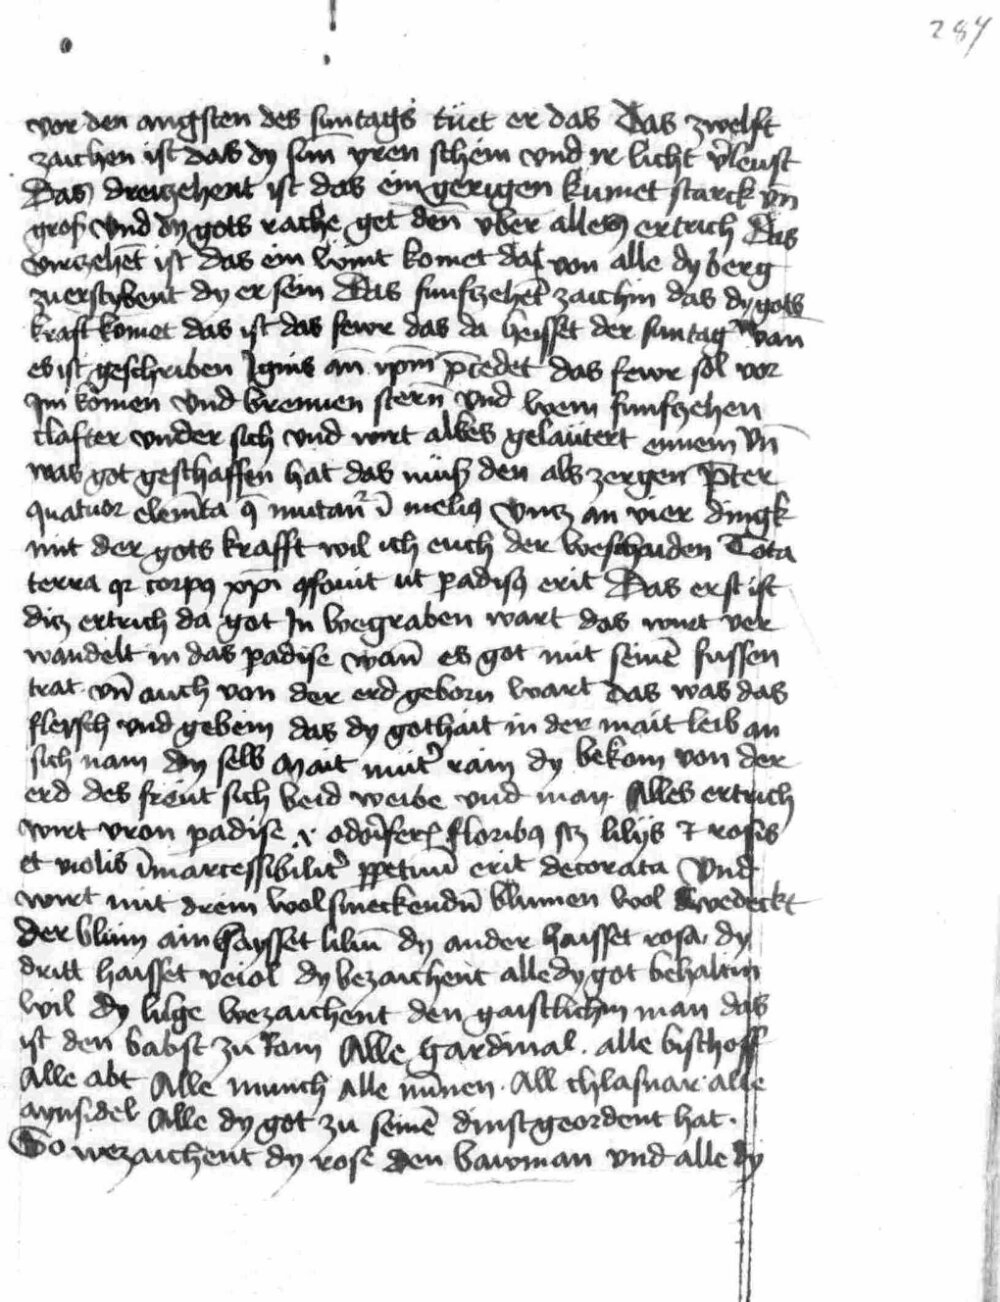 284
vor den angsten des suntags tüet er das Das zwelft
zaichen ist das dy sun̄ yren schein vnd ir licht v̓leust
Das dreiczehent ist das ein gerigen kumet starck vn̄
groß vnd dy gots rache get den̄ vber alles ertrich Das
virczehēt ist das ein wint komet das von alle dy berg
zuerstybent dy er sein Das funfczehēt zaichin das dy gots
kraft komet das ist das fewr das da heisset der suntag wan
es ist geschriben Ignis an̄ ip̄m p̄cedet das fewr sol vor
Im komen vnd brennen stern̄ vnd wem funfczehen
clafter vnder sich vnd wirt alles gelaütert einem vn̄
was got geschaffen hat das muß den als zergen P̄ter
quatuor elem̄ta q̄ mutan̄t ī meliꝯ vncz an vier dingk
mit der gots krafft wil ich euch der beschaiden Tota
terra qꝛ corpꝯ xp̄i ꝯfouit ut padisꝯ erit Das erst ist
dicz ertrich da got In begraben wart das wirt ver
wandelt in das padise wan̄ es got mit seinē fussen
trat vn̄ auch von der erd geborn wart das was das
fleysch vnd gebein das dy gothait in der mait leib an
sich nam dy selb mait mut̓ rain dy bekom von der
erd des frewt sich beid weibe vnd man Alles ertrich
wirt vron padise floribꝯ scꝫ lilijs ⁊ rosis
et violis īmarcessibilit̓ ꝑpetuū erit decorata Vnd
wirt mit drein wolsmeckendn̄ blumen wol bedeckt
der blum ain haysset liliū dy ander haisset rosa, dy
dritt haisset veiol dy bezaichent alle dy got behaltin
wil dy lilge bezaichent den gaistlichen man das
ist den babst zu Rom Alle Gardinal. alle bischoff
Alle abt Alle munch Alle nūnen. All chlasnar alle
aynsidel Alle dy got zu seinē dinst geordent hat.
So wezaichent dy rose den bawman vnd alle dy